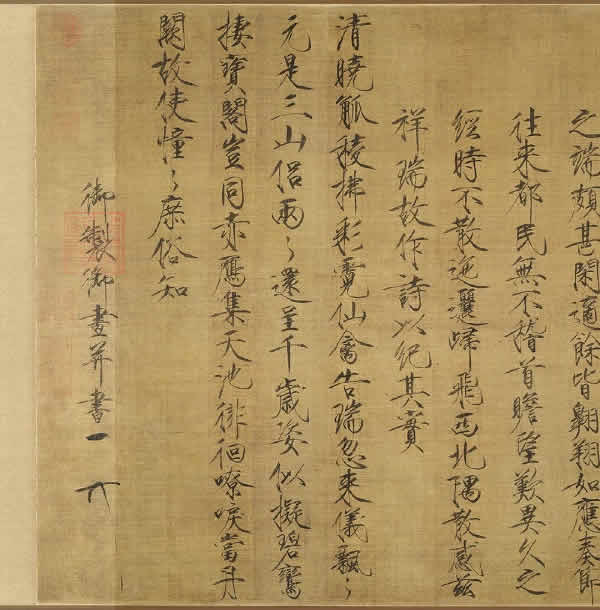 之端頗甚閑適餘皆翱翔如應奏節
往來都民無不稽首瞻望歎異久之
經時不散迤邐歸飛西北隅散感兹
祥瑞故作詩以紀其實
清曉觚稜拂彩霓仙禽告瑞忽來儀飄〻
元是三山侶兩〻還呈千歲姿似擬碧鸞
棲寶閣豈同赤鴈集天池徘徊嘹唳當丹
闕故使憧〻庶俗知
御製御畫并書